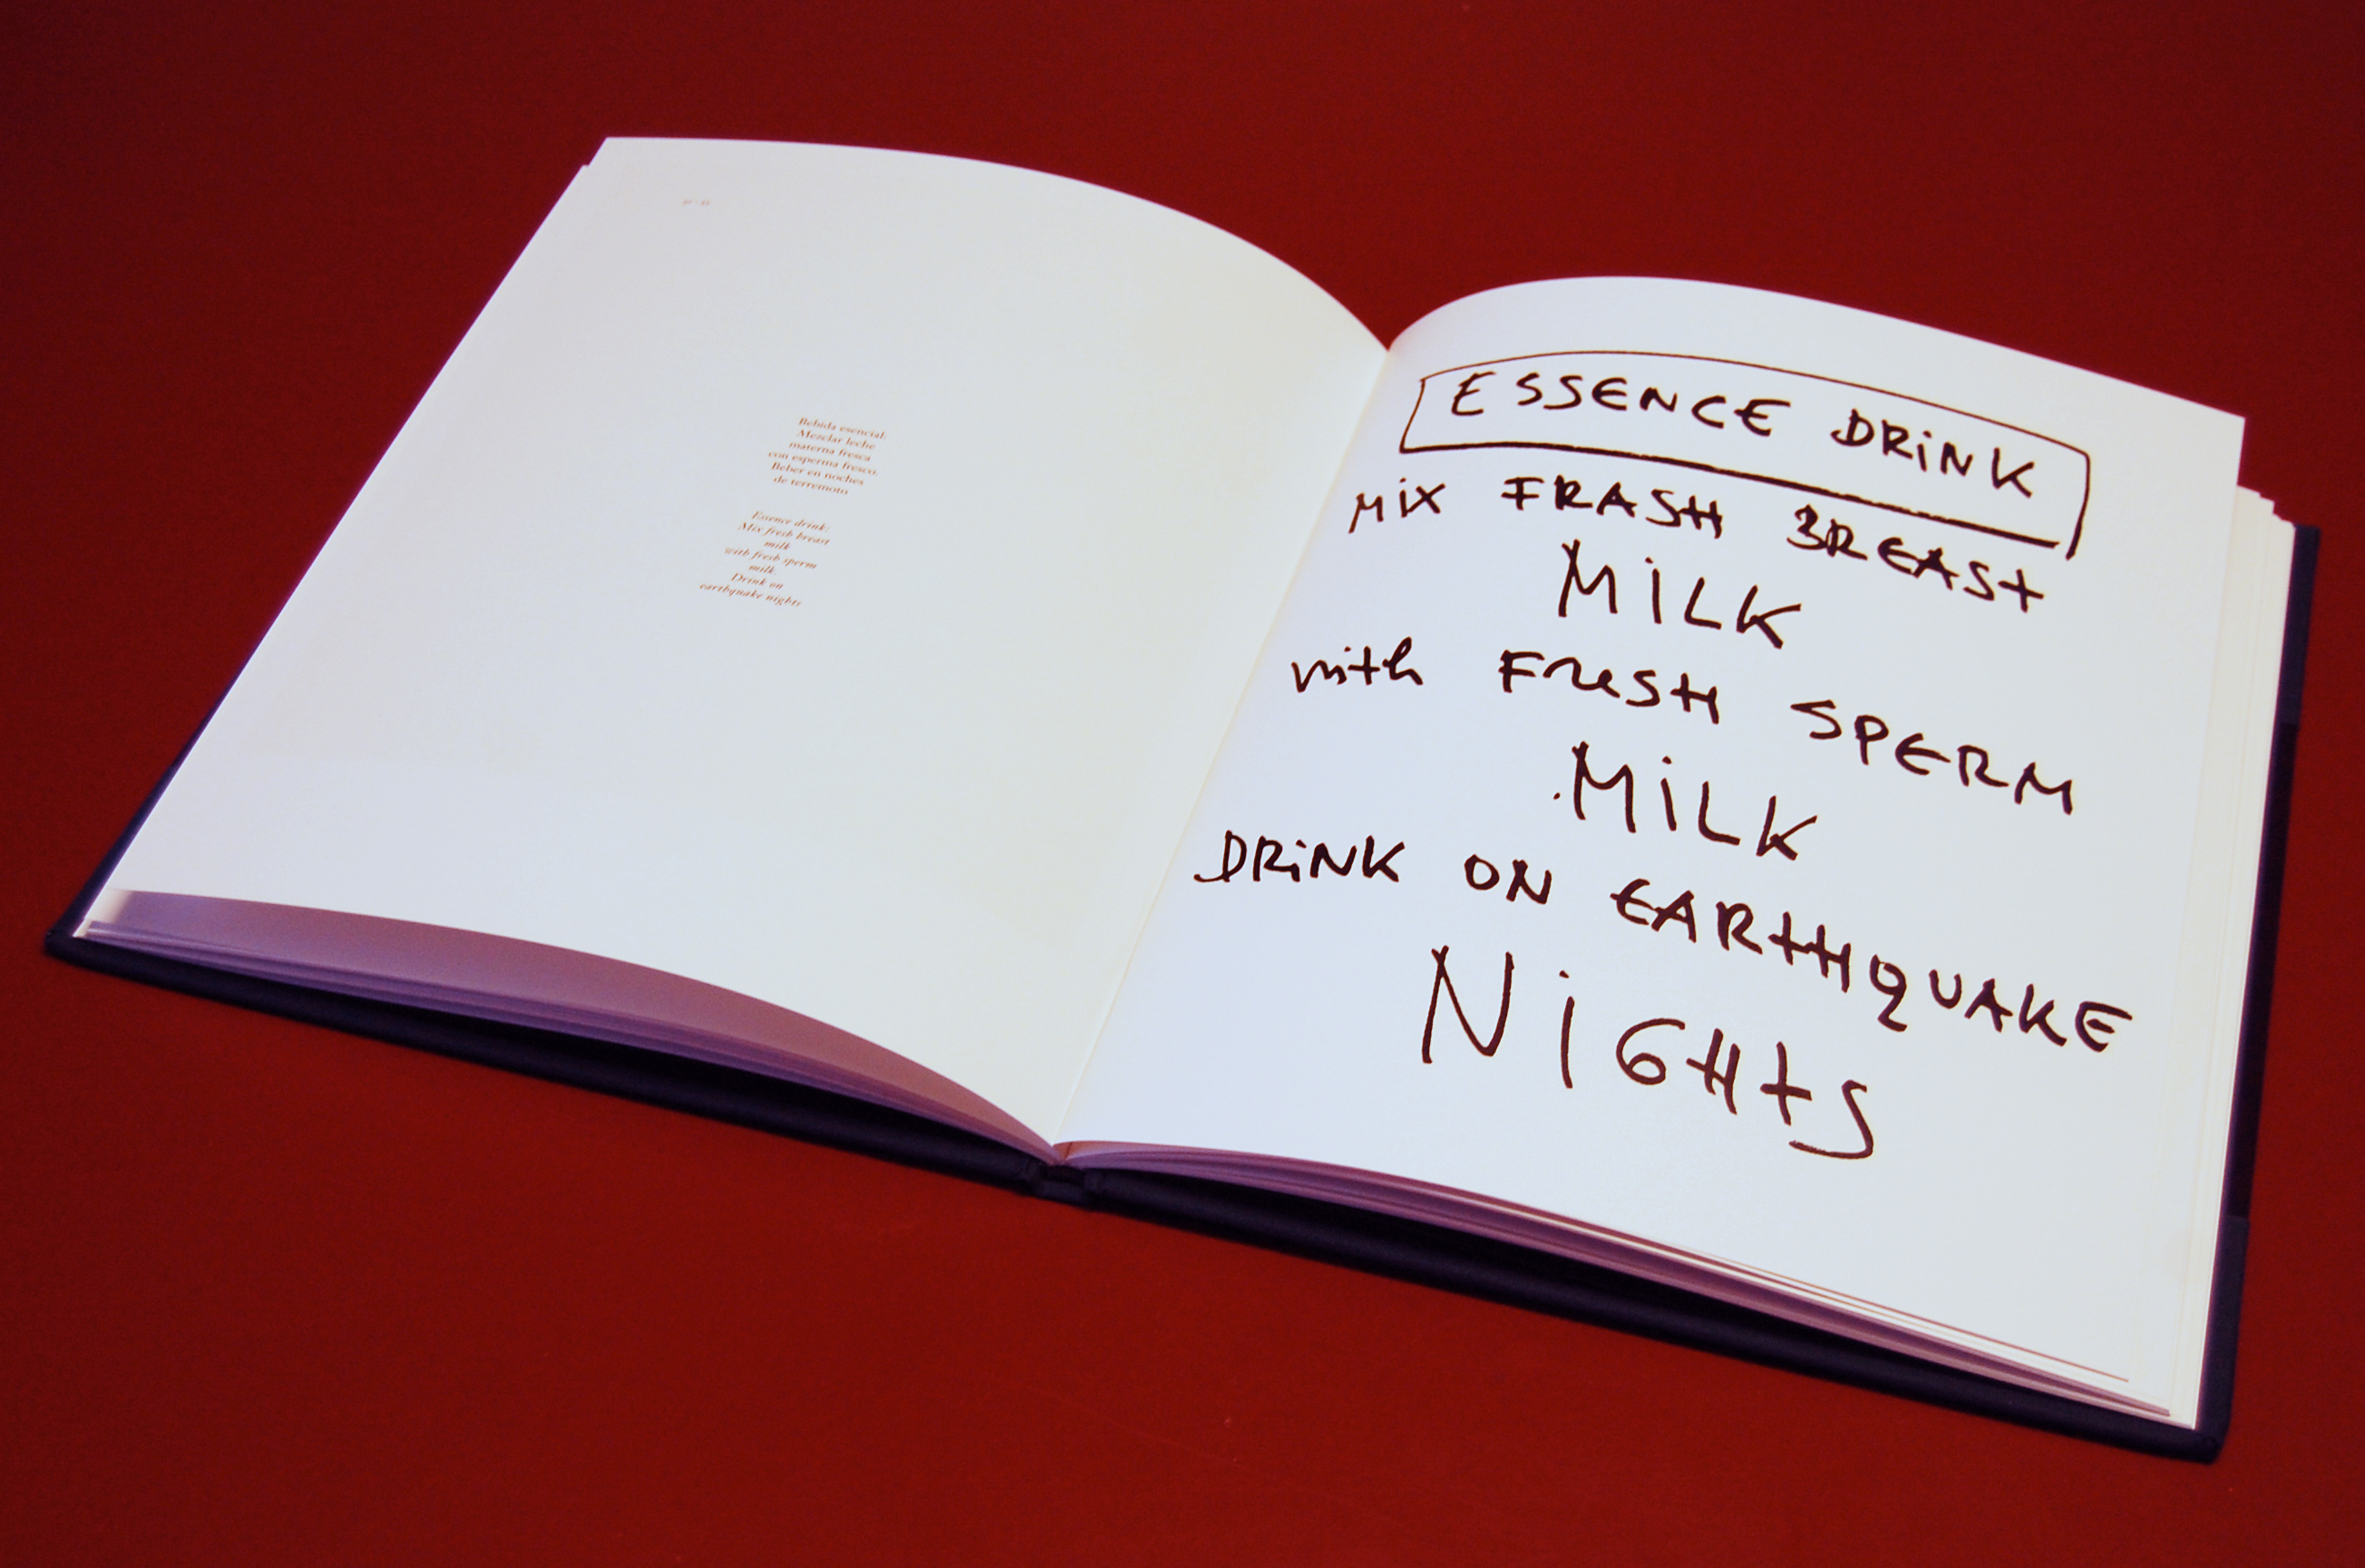 Bebida esencial:
Mezclar leche
materna fresca
con esperma fresco.
Beber en noches
de terremoto
Essence drink:
Mix fresh breast
milk
with fresh sperm
milk.
Drink on
earthquake nights
ESSENCE DRiNK
MiX FRASH BREAST
MiLK
with FresH SPERM
MiLK
DRiNK ON EARTHQUAKE
NiGHtS